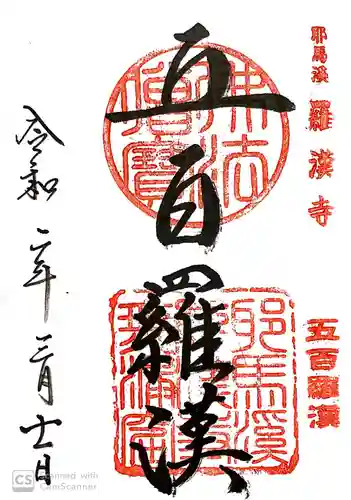 耶馬溪 羅漢寺
五百羅漢
五百羅漢
佛法僧寶
耶馬溪
令和二年三月十一日
CS Scanned with
CamScanner